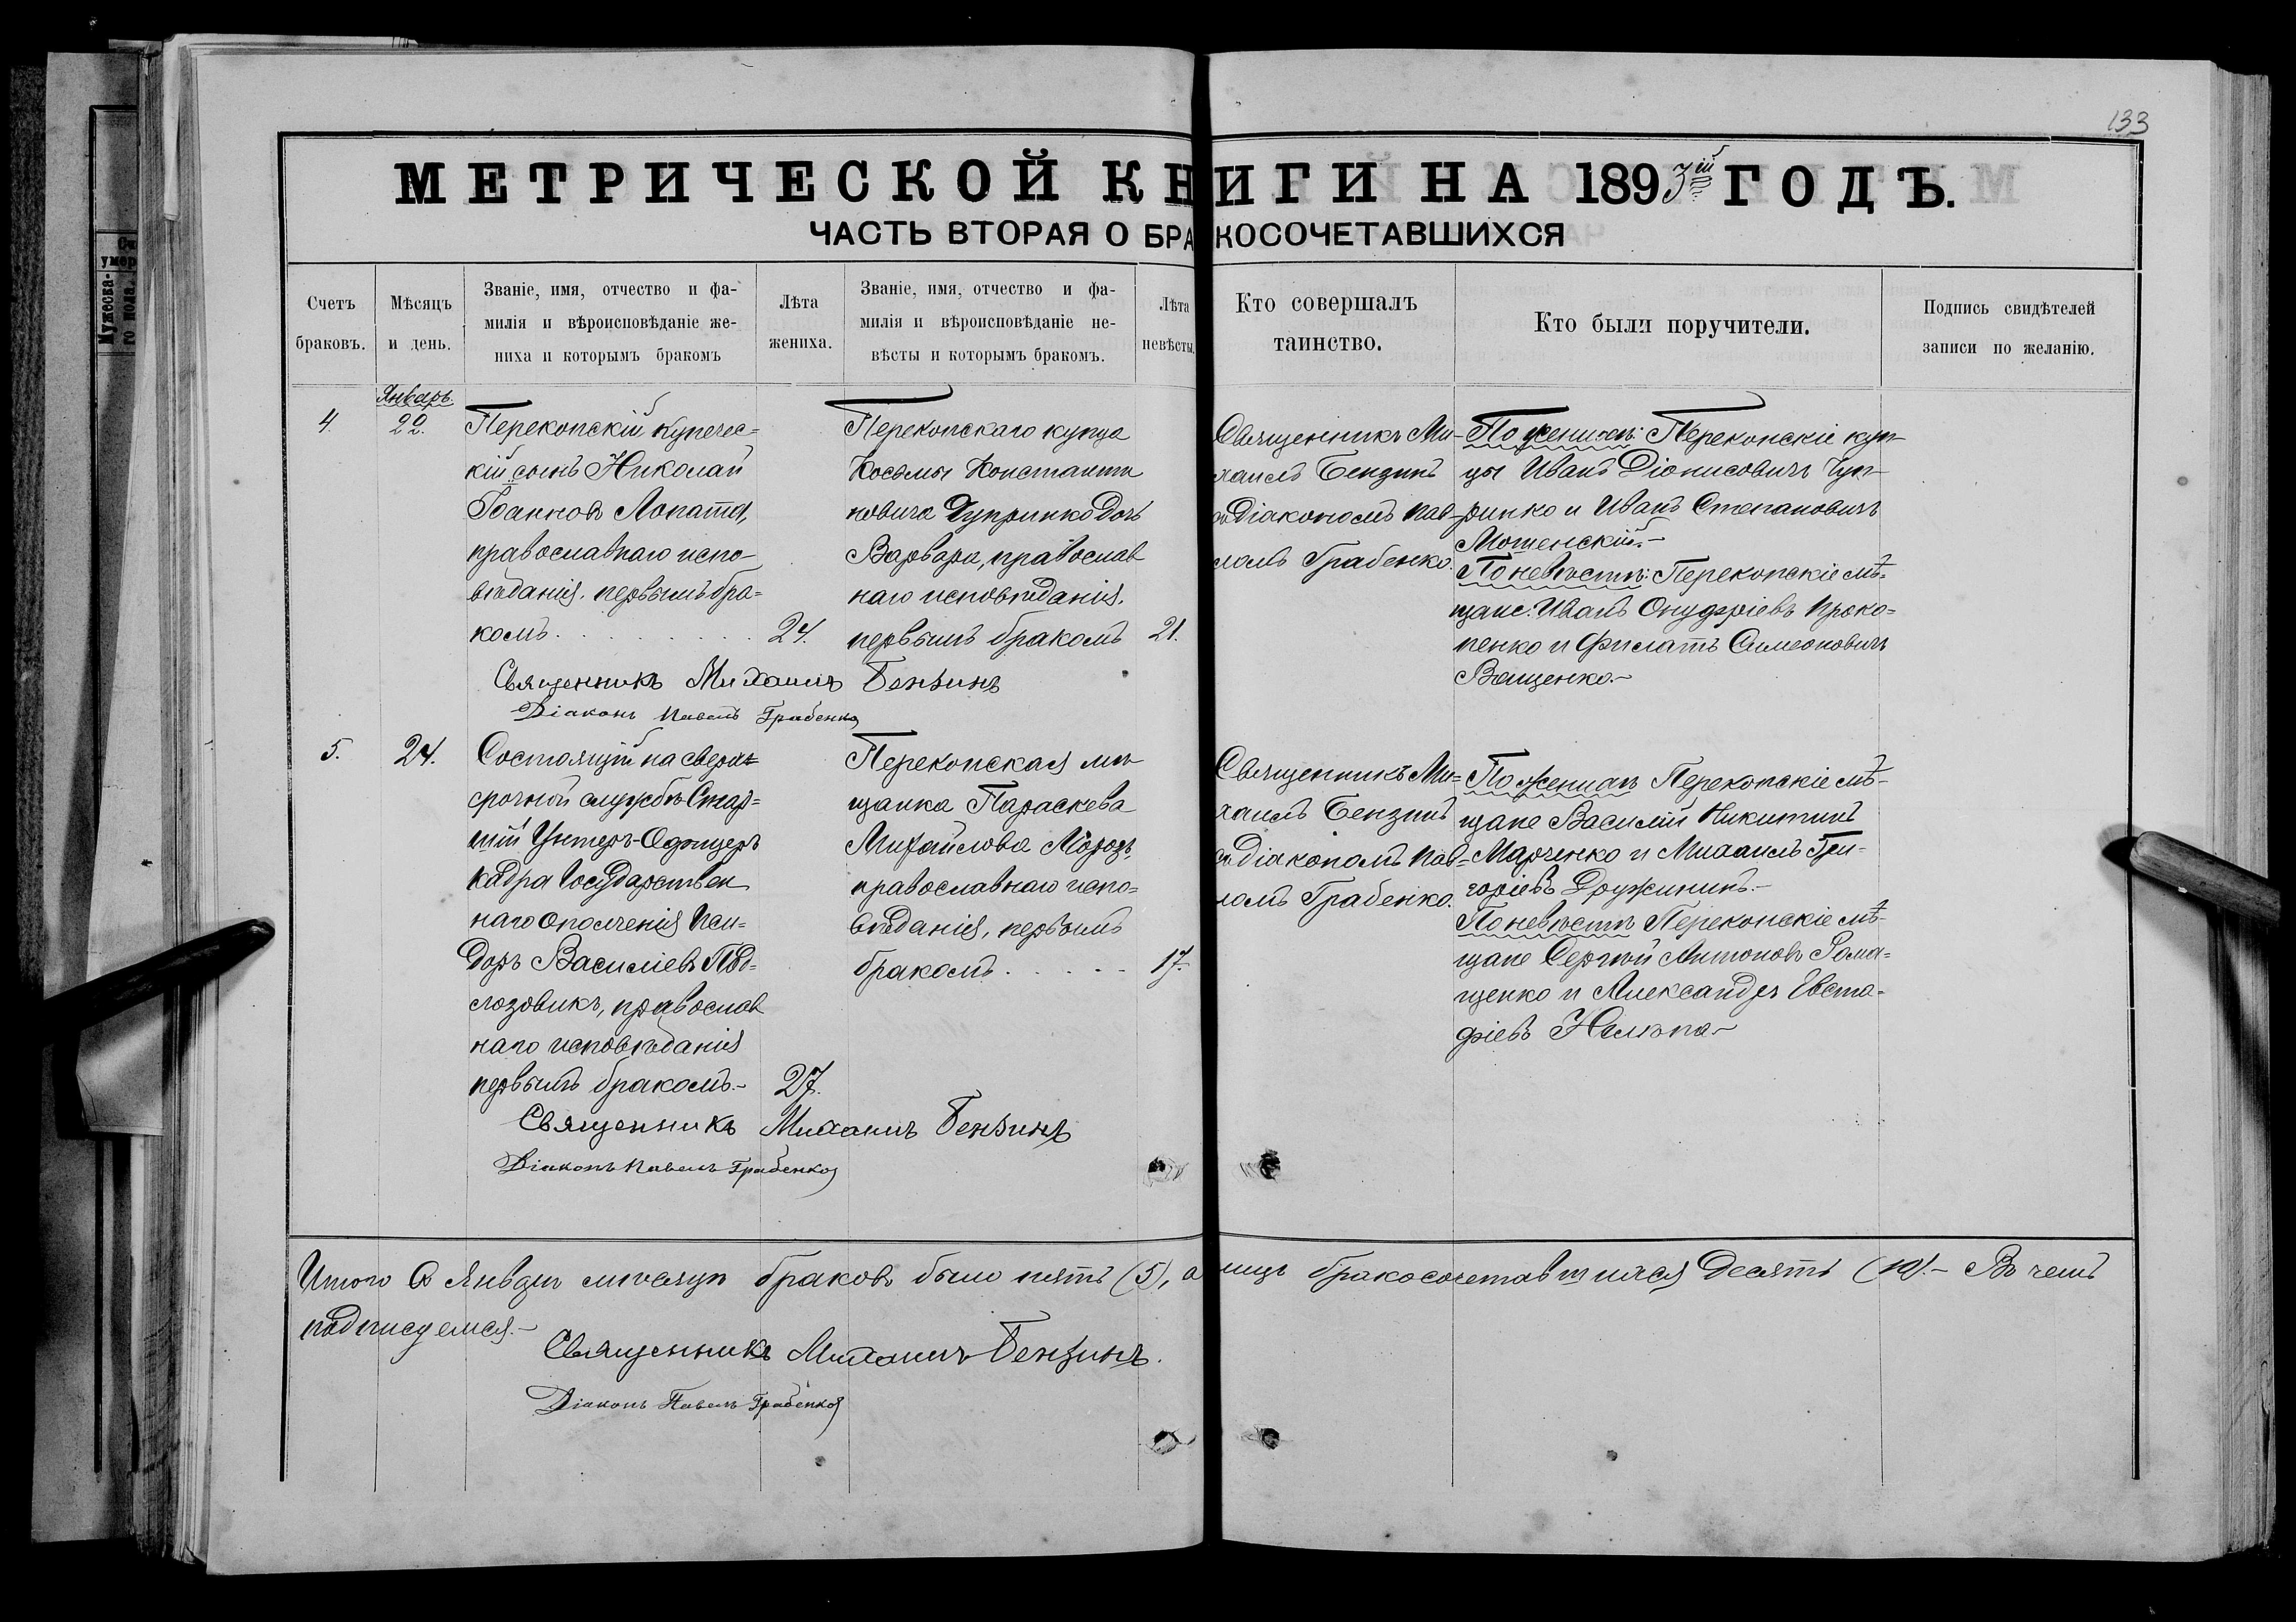 133
МЕТРИЧЕСКОЙ КНИГИ НА 1893ій ГОДЪ.
ЧАСТЬ ВТОРАЯ О БРАКОСОЧЕТАВШИХСЯ
Счетъ
браковъ.
Мѣсяцъ
и день.
Званіе, имя, отчество и фа-
милія и вѣроисповѣданіе же-
ниха и которымъ бракомъ
Лѣта
жениха.
Званіе, имя, отчество и фа-
милія и вѣроисповѣданіе не-
вѣсты и которымъ бракомъ.
Лѣта
невѣсты.
Кто совершалъ
таинство.
Кто были поручители.
Подпись свидѣтелей
записи по желанію.
4.
Январь.
22.
Перекопскій купечес=
кій сынъ Николай
Іоанновъ Лопата,
православнаго испо-
вѣданія, первымъ бра=
комъ.
24.
Перекопскаго купца
Косьмы Константи
новича Дупринко дочь
Варвара, православ
наго исповѣданія,
первымъ бракомъ
21.
Священникъ Ми-
хаилъ Бензинъ
съ Діакономъ Пав-
ломъ Грабенко.
По женихѣ: Перекопскіе куп-
цы Иванъ Діонисовичъ
и Иванъ Степановичъ
Мошенскій.-
По невѣстѣ: Перекопскіе мѣ=
щане: Иванъ Онуфріевъ Проко=
пенко и Филатъ Симеоновичъ
Ващенко.-
Священникъ Михаилъ Бензинъ
Діаконъ Павелъ Грабенко
5.
24.
Состоящій на сверх=
срочной службѣ Стар=
шій Унтеръ-Офицеръ
кадра Государствен
наго ополченія Иси=
доръ Василіевъ Под=
слозовикъ, православ
наго исповѣданія
первымъ бракомъ.-
27.
Перекопская мѣ
щанка Параскева
Михайлова Морозъ,
православнаго испо=
вѣданія, первымъ
бракомъ.
17.
Священникъ Ми=
хаилъ Бензинъ
съ Діакономъ Пав=
ломъ Грабенко.
По женихѣ Перекопскіе мѣ-
щане Василій Никитинъ
Марченко и Михаилъ Гри-
горіевъ Дружининъ.-
По невѣстѣ Перекопскіе мѣ-
щане Сергѣй Антоновъ Рома=
щенко и Александръ Евста-
фіевъ
Священникъ Михаилъ Бензинъ
Діаконъ Павелъ Грабенко
Итого въ Январѣ мѣсяцѣ браковъ было пять (5), а лицъ бракосочетавшихся десять (10).- Въ чемъ
подписуемся.-
Священникъ Михаилъ Бензинъ.
Діаконъ Павелъ Грабенко